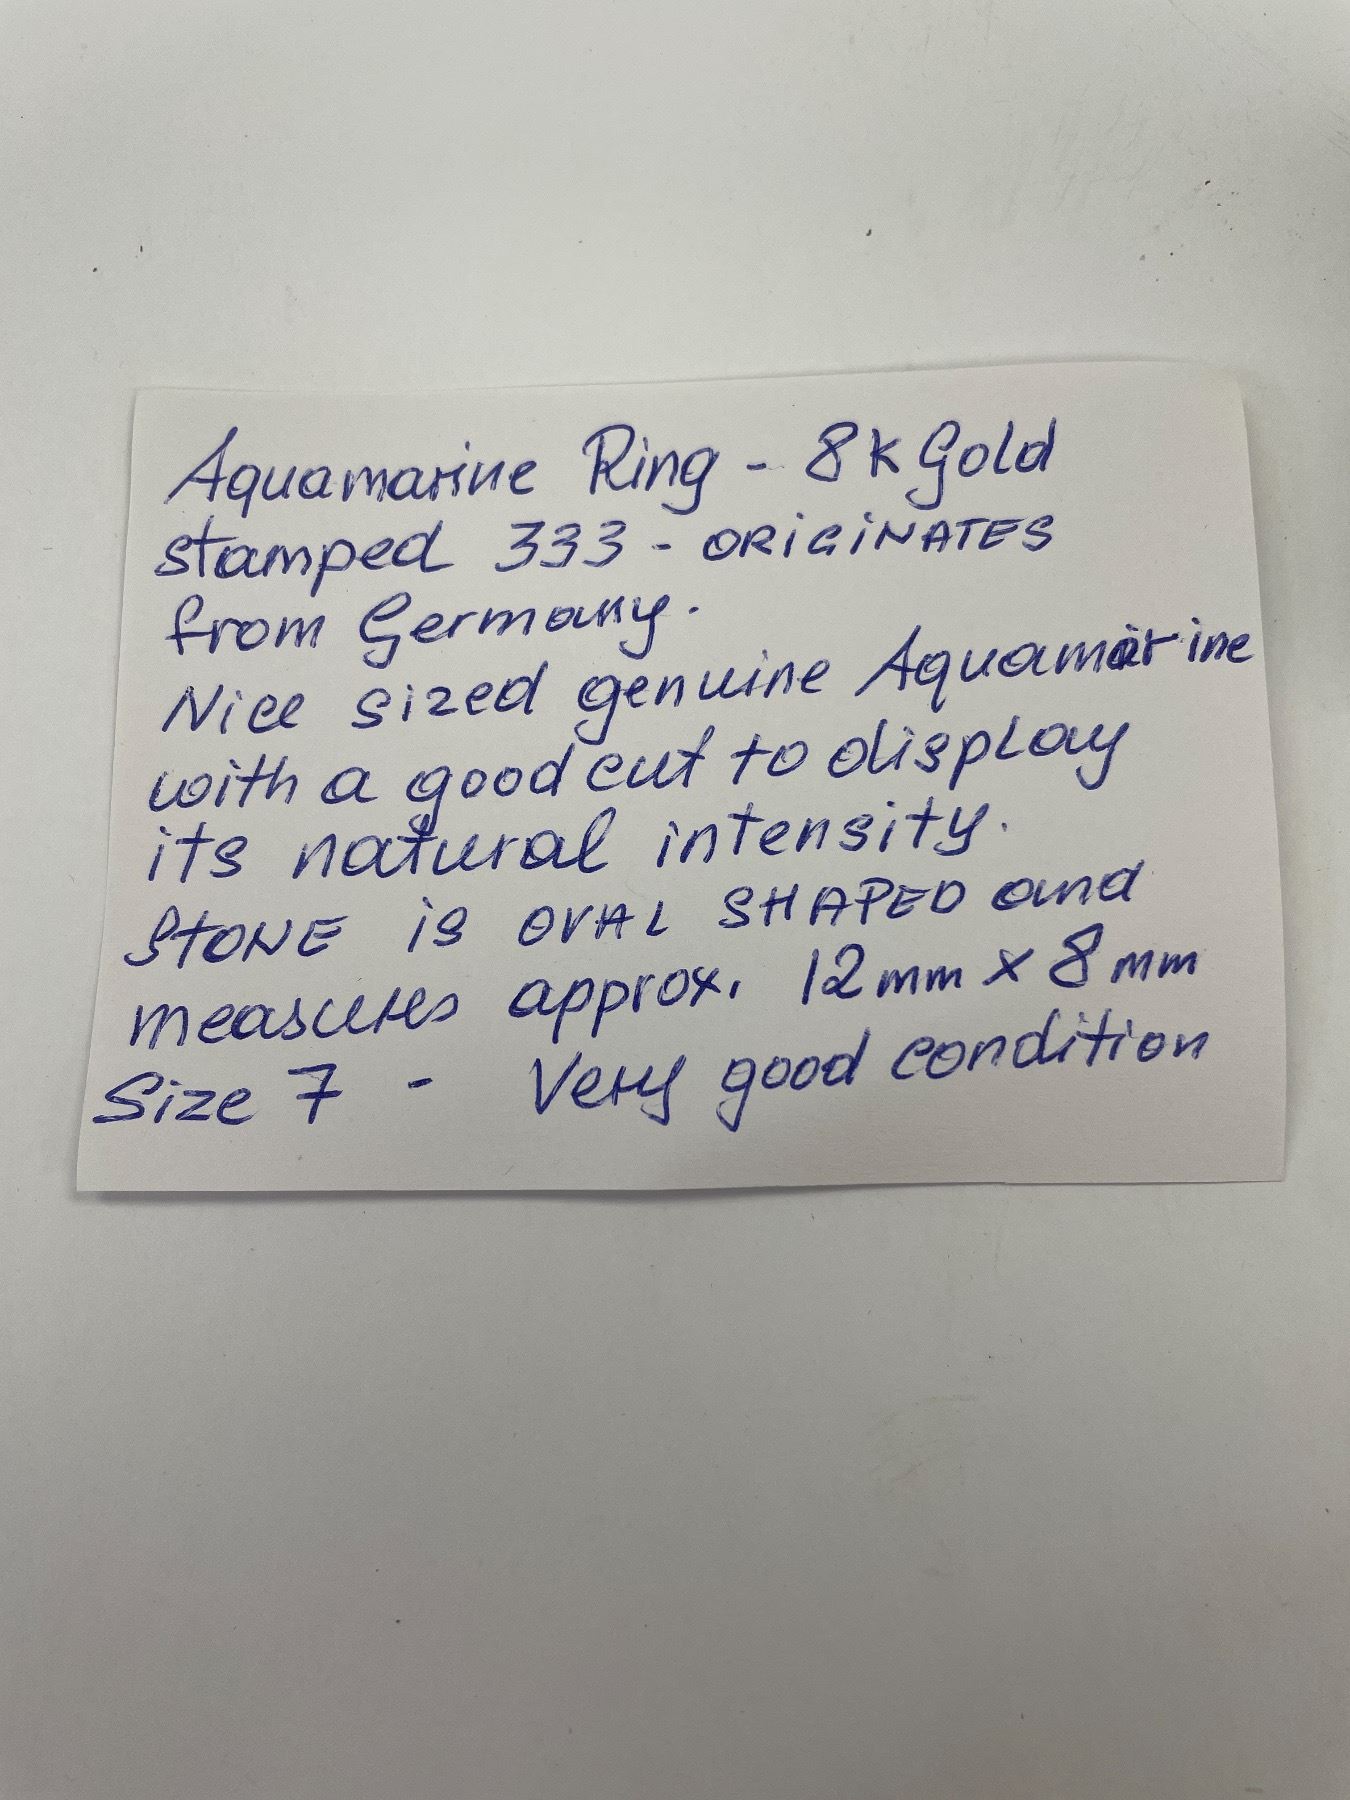 Aquamarine Ring - 8k Gold
stamped 333 - ORIGINATES
from Germany.
Nice sized genuine Aquamarine
with a good cut to display
its natural intensity.
STONE is OVAL SHAPED and
measures approx. 12mm x 8mm
Size 7 - Very good condition